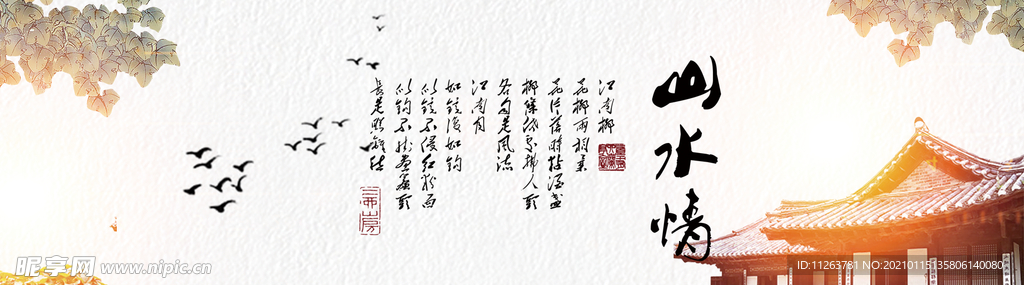 山水情
江南柳
花柳两相柔
花片落时黏酒盏
柳条低处拂人头
各自是风流
江南月
如镜复如钩
似镜不侵红粉面
似钩不挂画帘头
长是照离愁
昵享网 www.nipic.cn
ID:11263781 NO:20210115135806140080